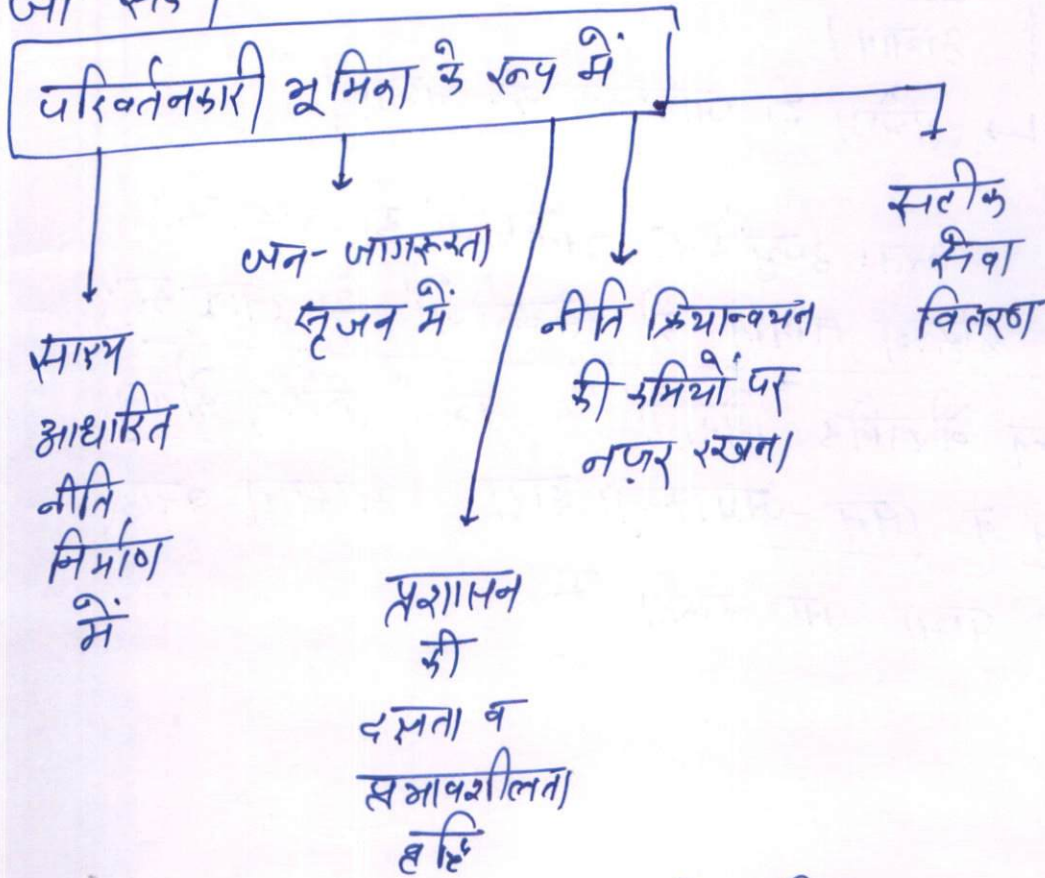 जा सके।
परिवर्तनकारी भूमिका के रूप में
साक्ष्य
आधारित
नीति
निर्माण
में
जन-जागरूकता
सृजन में
प्रशासन
की
दक्षता व
प्रभावशीलता
वृद्धि
नीति क्रियान्वयन
की कमियों पर
नज़र रखना
सटीक
सेवा
वितरण